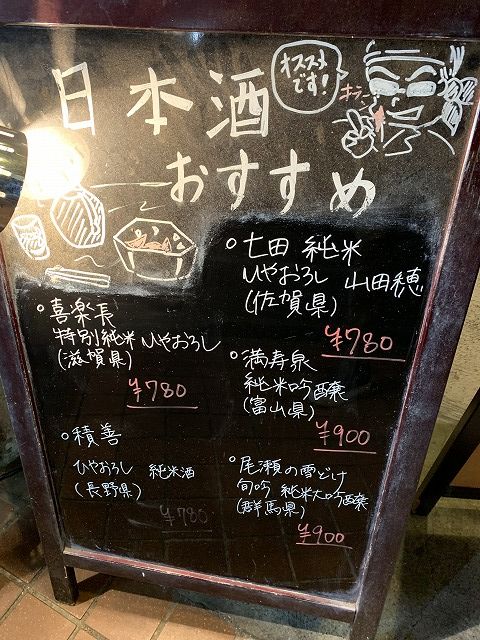 日本酒
おすすめ
オススメ
です!
七田 純米
ひやおろし 山田穂
(佐賀県)
¥780
満寿泉
純米吟醸
(富山県)
¥900
尾瀬の雪どけ
旬吟 純米大吟醸
(群馬県)
¥900
喜楽長
特別純米 ひやおろし
(滋賀県)
¥780
積善
ひやおろし 純米酒
(長野県)
¥780